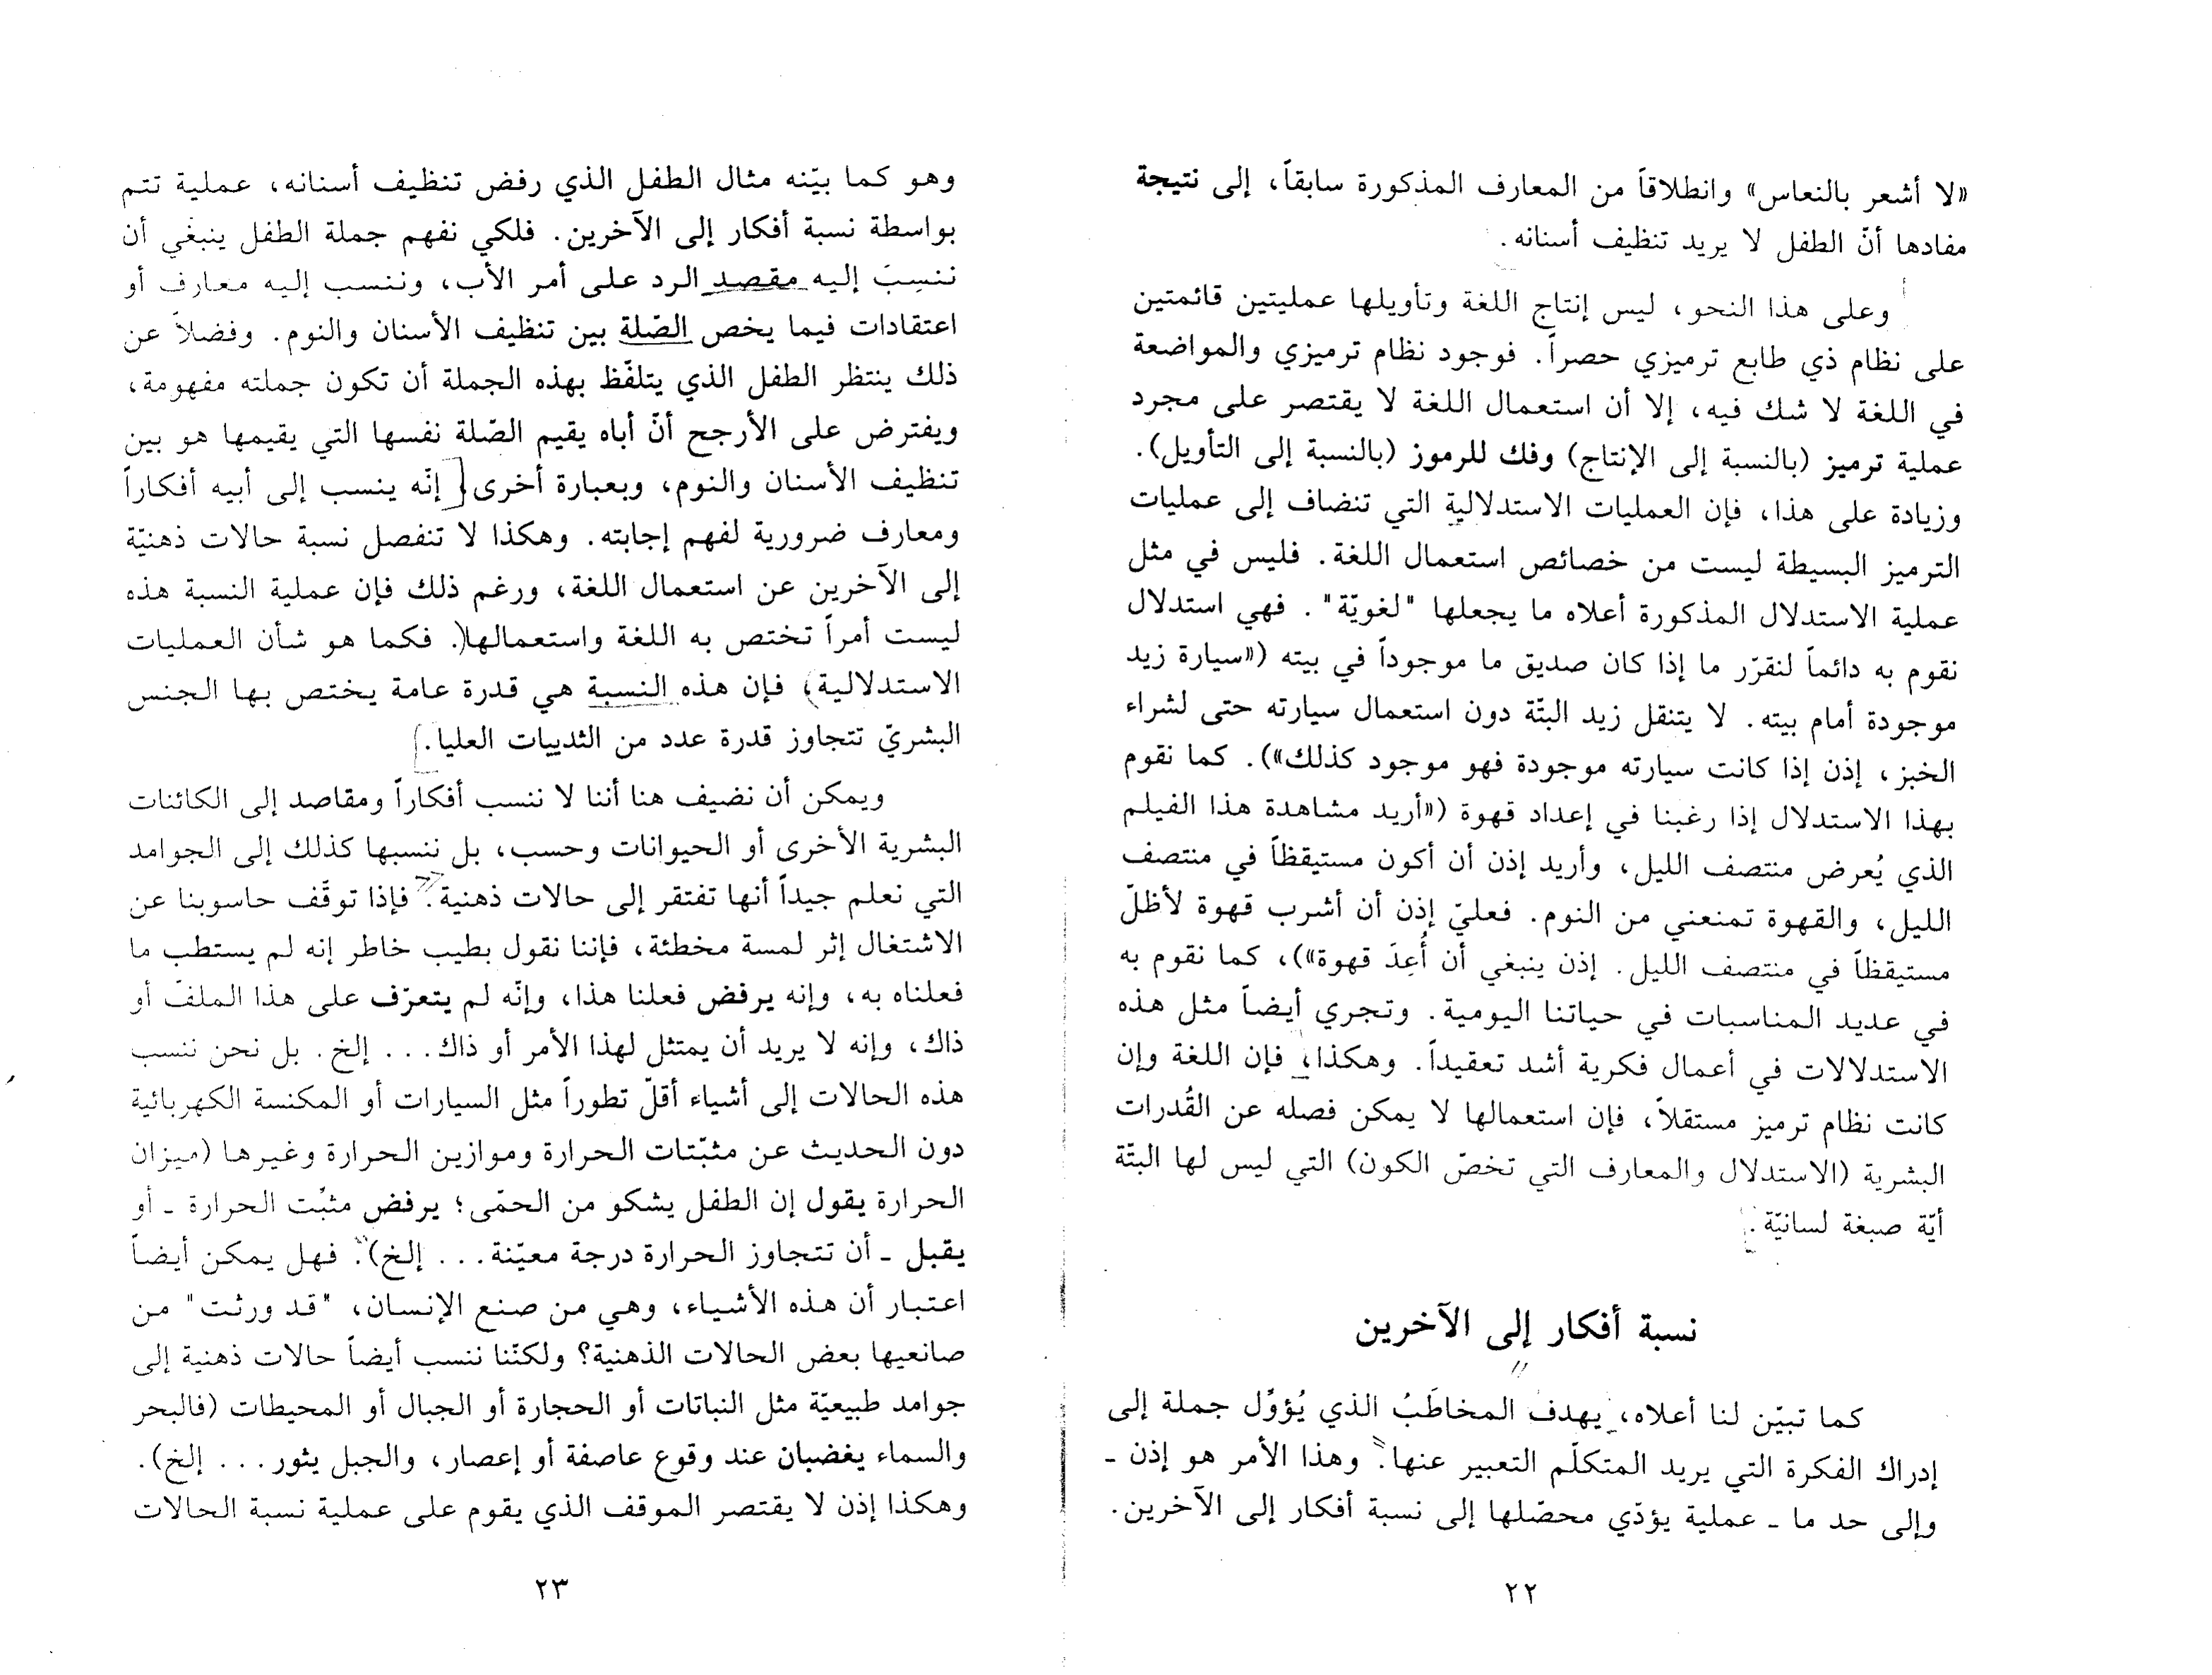 «لا أشعر بالنعاس» وانطلاقاً من المعارف المذكورة سابقاً، إلى نتيجة
مفادها أنّ الطفل لا يريد تنظيف أسنانه.
وعلى هذا النحو، ليس إنتاج اللغة وتأويلها عمليتين قائمتين
على نظام ذي طابع ترميزي حصراً. فوجود نظام ترميزي والمواضعة
في اللغة لا شك فيه، إلا أن استعمال اللغة لا يقتصر على مجرد
عملية ترميز (بالنسبة إلى الإنتاج) وفك للرموز (بالنسبة إلى التأويل).
وزيادة على هذا، فإن العمليات الاستدلالية التي تنضاف إلى عمليات
الترميز البسيطة ليست من خصائص استعمال اللغة. فليس في مثل
عملية الاستدلال المذكورة أعلاه ما يجعلها "لغويّة". فهي استدلال
نقوم به دائماً لنقرّر ما إذا كان صديق ما موجوداً في بيته («سيارة زيد
موجودة أمام بيته. لا يتنقل زيد البتّة دون استعمال سيارته حتى لشراء
الخبز، إذن إذا كانت سيارته موجودة فهو موجود كذلك»). كما نقوم
بهذا الاستدلال إذا رغبنا في إعداد قهوة («أريد مشاهدة هذا الفيلم
الذي يُعرض منتصف الليل، وأريد إذن أن أكون مستيقظاً في منتصف
الليل، والقهوة تمنعني من النوم. فعليّ إذن أن أشرب قهوة لأظلّ
مستيقظاً في منتصف الليل. إذن ينبغي أن أُعِدَ قهوة»)، كما نقوم به
في عديد المناسبات في حياتنا اليومية. وتجري أيضاً مثل هذه
الاستدلالات في أعمال فكرية أشد تعقيداً. وهكذا، فإن اللغة وإن
كانت نظام ترميز مستقلاً، فإن استعمالها لا يمكن فصله عن القُدرات
البشرية (الاستدلال والمعارف التي تخصّ الكون) التي ليس لها البتّة
أيّة صبغة لسانيّة.
نسبة أفكار إلى الآخرين
كما تبيّن لنا أعلاه، يهدف المخاطَبُ الذي يُؤوِّل جملة إلى
إدراك الفكرة التي يريد المتكلّم التعبير عنها. وهذا الأمر هو إذن ـ
وإلى حد ما ـ عملية يؤدّي محصّلها إلى نسبة أفكار إلى الآخرين.
٢٢
وهو كما بيّنه مثال الطفل الذي رفض تنظيف أسنانه، عملية تتم
بواسطة نسبة أفكار إلى الآخرين. فلكي نفهم جملة الطفل ينبغي أن
ننسِبَ إليه مقصد الرد على أمر الأب، وننسب إليه معارف أو
اعتقادات فيما يخص الصّلة بين تنظيف الأسنان والنوم. وفضلاً عن
ذلك ينتظر الطفل الذي يتلفّظ بهذه الجملة أن تكون جملته مفهومة،
ويفترض على الأرجح أنّ أباه يقيم الصّلة نفسها التي يقيمها هو بين
تنظيف الأسنان والنوم، وبعبارة أخرى، إنّه ينسب إلى أبيه أفكاراً
ومعارف ضرورية لفهم إجابته. وهكذا لا تنفصل نسبة حالات ذهنيّة
إلى الآخرين عن استعمال اللغة، ورغم ذلك فإن عملية النسبة هذه
ليست أمراً تختص به اللغة واستعمالها. فكما هو شأن العمليات
الاستدلالية، فإن هذه النسبة هي قدرة عامة يختص بها الجنس
البشريّ تتجاوز قدرة عدد من الثدييات العليا.
ويمكن أن نضيف هنا أننا لا ننسب أفكاراً ومقاصد إلى الكائنات
البشرية الأخرى أو الحيوانات وحسب، بل ننسبها كذلك إلى الجوامد
التي نعلم جيداً أنها تفتقر إلى حالات ذهنية. فإذا توقّف حاسوبنا عن
الاشتغال إثر لمسة مخطئة، فإننا نقول بطيب خاطر إنه لم يستطب ما
فعلناه به، وإنه يرفض فعلنا هذا، وإنّه لم يتعرّف على هذا الملفّ أو
ذاك، وإنه لا يريد أن يمتثل لهذا الأمر أو ذاك... إلخ. بل نحن ننسب
هذه الحالات إلى أشياء أقلّ تطوراً مثل السيارات أو المكنسة الكهربائية
دون الحديث عن مثبّتات الحرارة وموازين الحرارة وغيرها (ميزان
الحرارة يقول إن الطفل يشكو من الحمّى؛ يرفض مثبّت الحرارة ـ أو
يقبل ـ أن تتجاوز الحرارة درجة معيّنة... إلخ). فهل يمكن أيضاً
اعتبار أن هذه الأشياء، وهي من صنع الإنسان، "قد ورثت" من
صانعيها بعض الحالات الذهنية؟ ولكنّنا ننسب أيضاً حالات ذهنية إلى
جوامد طبيعيّة مثل النباتات أو الحجارة أو الجبال أو المحيطات (فالبحر
والسماء يغضبان عند وقوع عاصفة أو إعصار، والجبل يثور... إلخ).
وهكذا إذن لا يقتصر الموقف الذي يقوم على عملية نسبة الحالات
٢٣